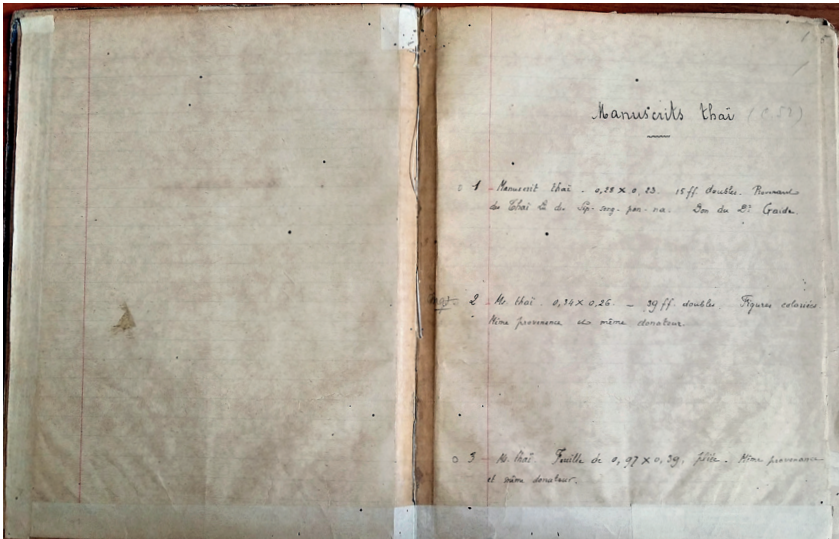 Manuscrits thaï
1 - Manuscrit thaï - 0,28 x 0,23. 15 ff. doubles.
des Thaï de Sip-song-pan-na. Don du Dr Gaide.
2 - Ms. thaï. 0,34 x 0,26. - 39 ff. doubles. Figures coloriées
Même provenance et même donateur.
3 - Ms. thaï. Feuille de 0,97 x 0,39, pliée. Même provenance
et même donateur.